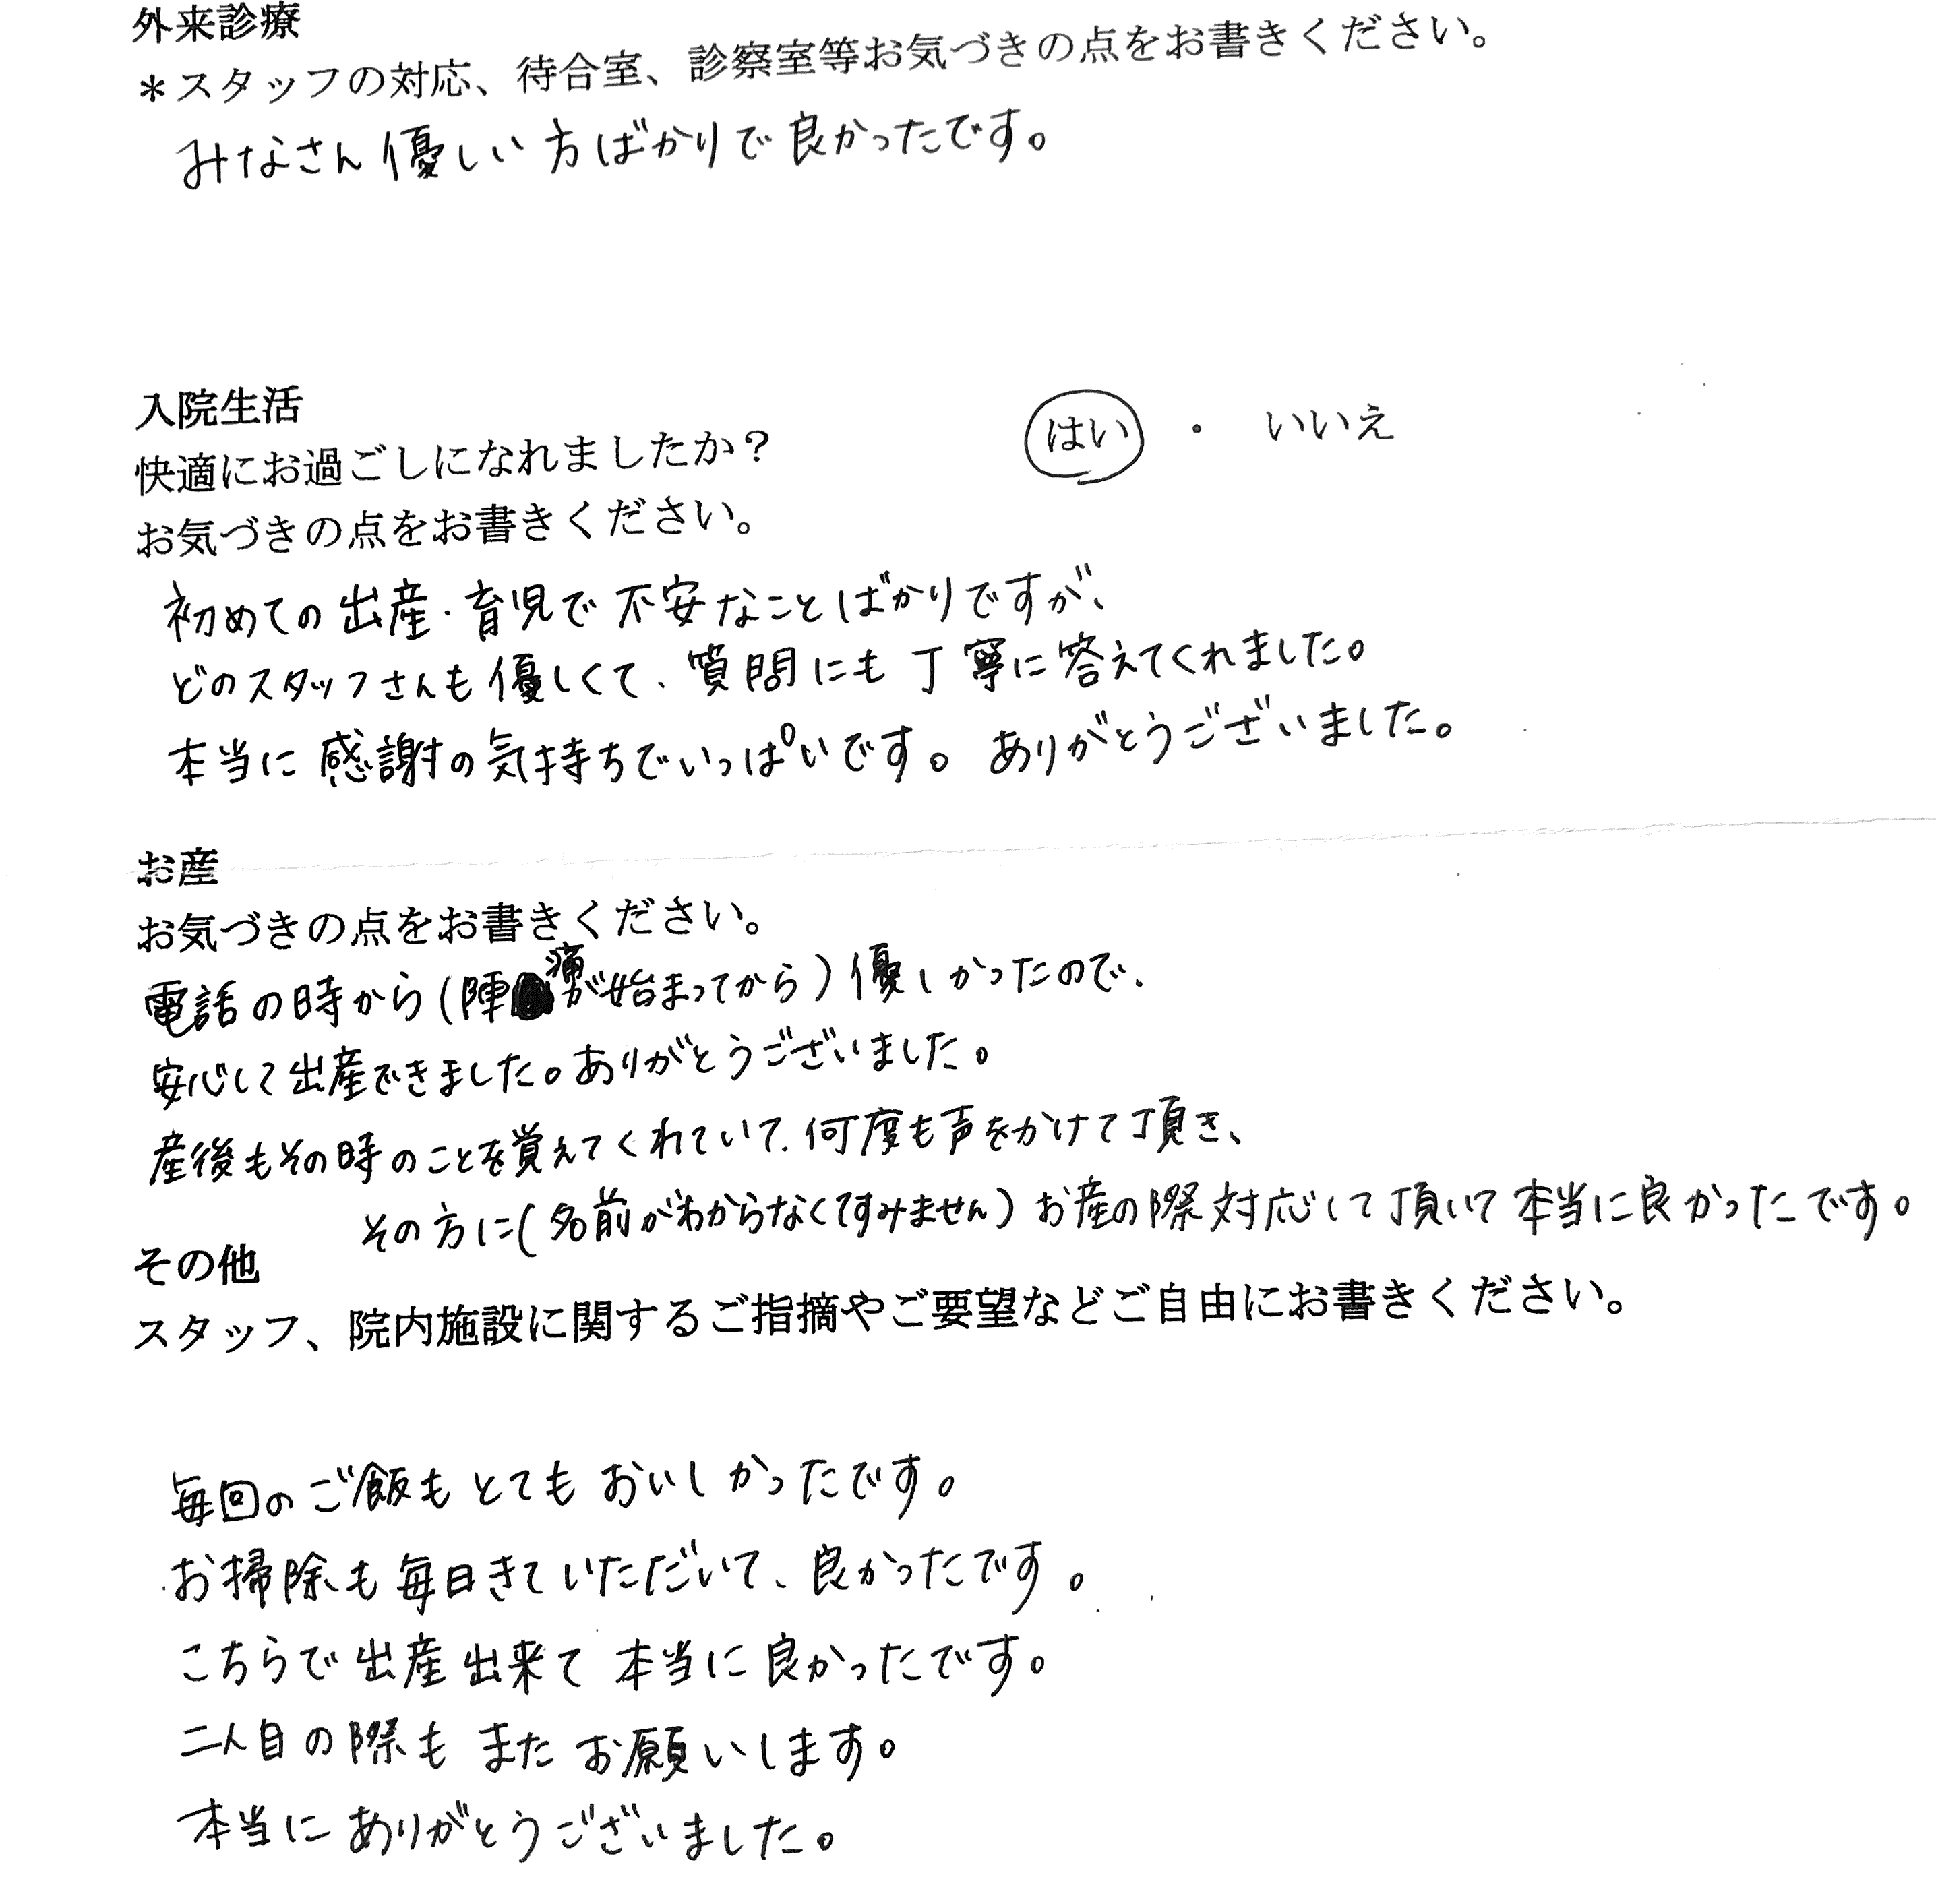 外来診療
＊スタッフの対応、待合室、診察室等お気づきの点をお書きください。
みなさん優しい方ばかりで良かったです。
入院生活
快適にお過ごしになれましたか？　はい ・ いいえ
お気づきの点をお書きください。
初めての出産・育児で不安なことばかりですが、
どのスタッフさんも優しくて、質問にも丁寧に答えてくれました。
本当に感謝の気持ちでいっぱいです。ありがとうございました。
お産
お気づきの点をお書きください。
電話の時から（陣痛が始まってから）優しかったので、
安心して出産できました。ありがとうございました。
産後もその時のことを覚えてくれていて、何度も声をかけて頂き、
その方に（名前がわからなくてすみません）お産の際対応して頂いて本当に良かったです。
その他
スタッフ、院内施設に関するご指摘やご要望などご自由にお書きください。
毎回のご飯もとてもおいしかったです。
お掃除も毎日きていただいて、良かったです。
こちらで出産出来て本当に良かったです。
二人目の際もまたお願いします。
本当にありがとうございました。